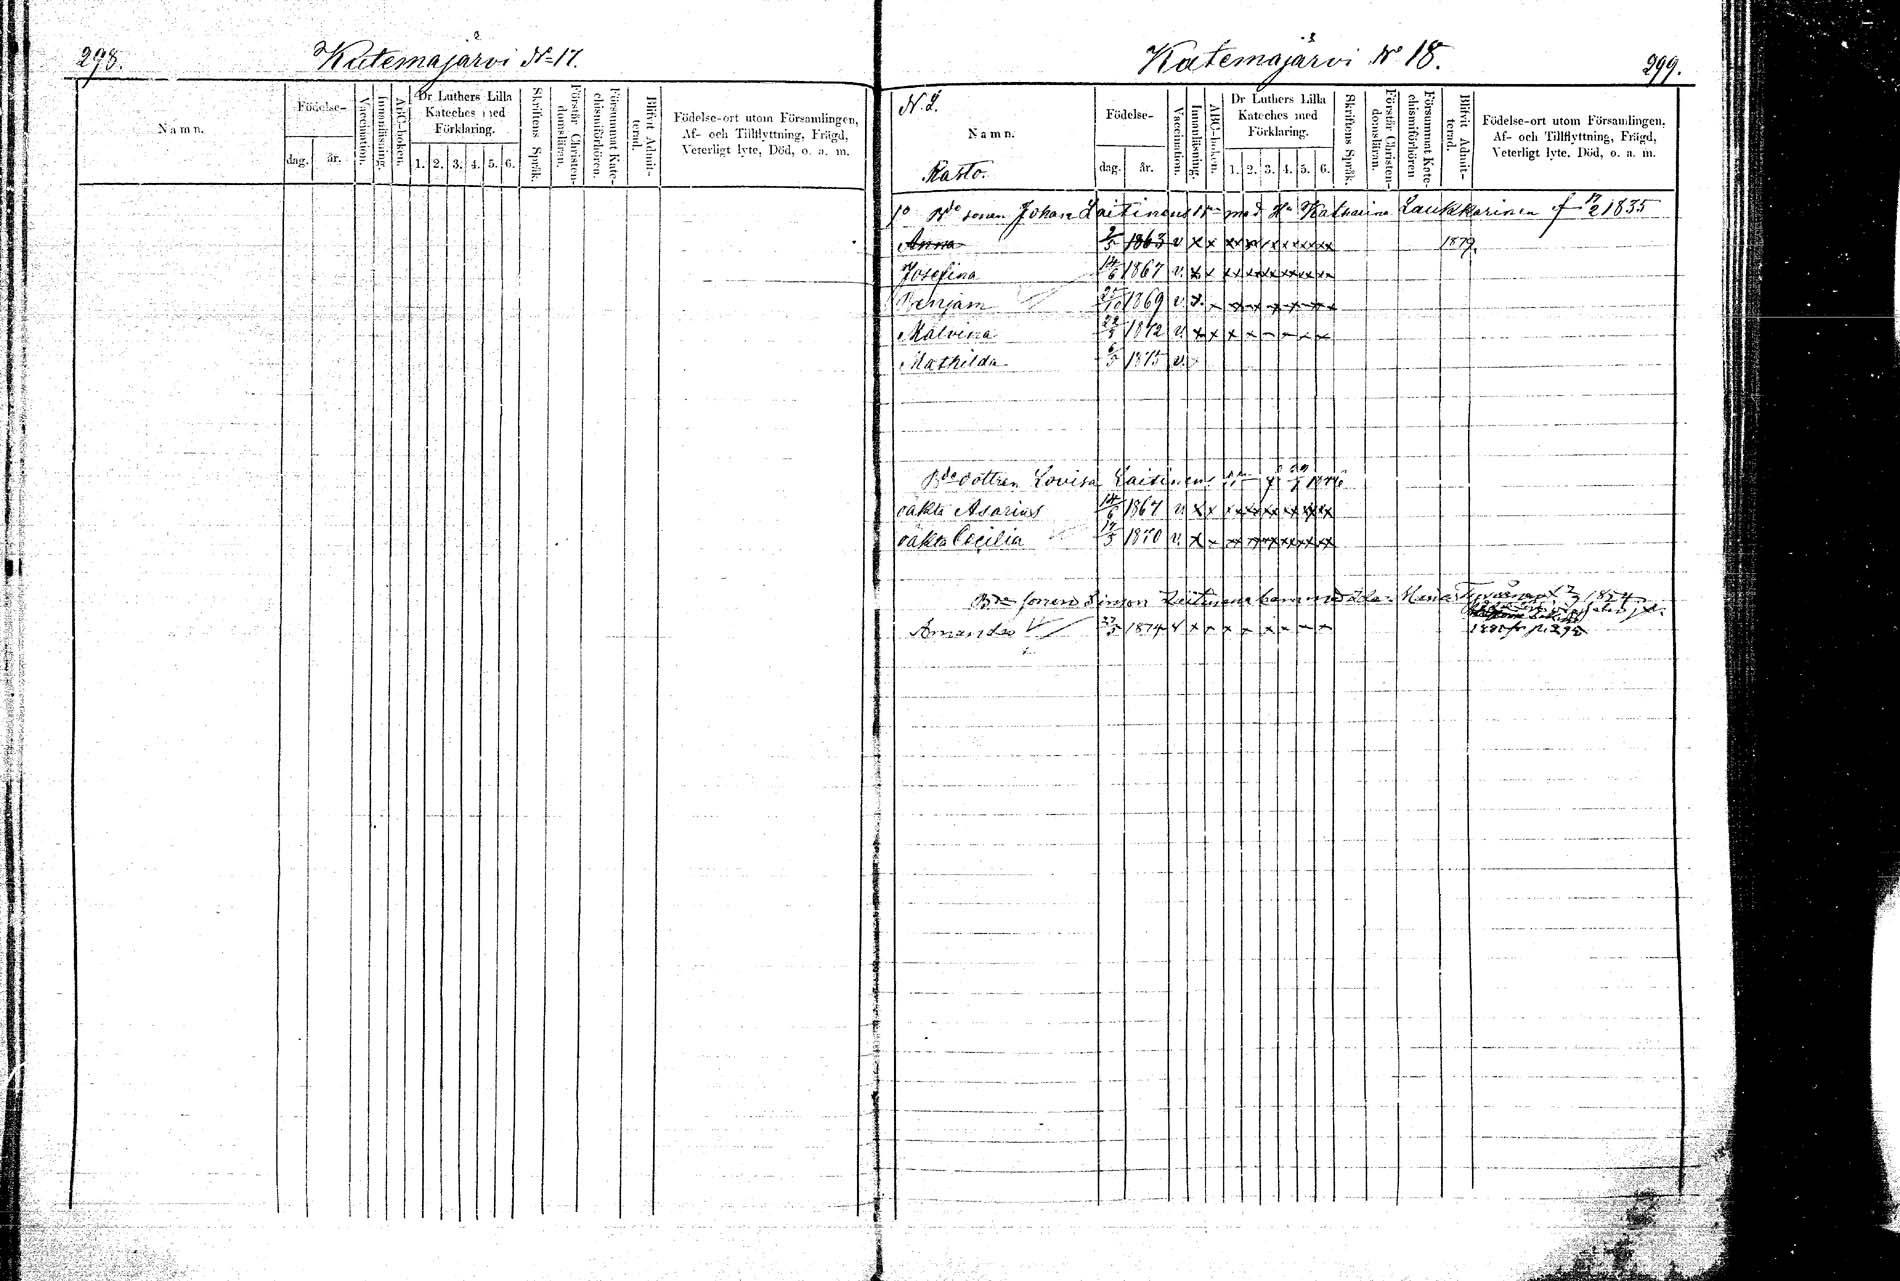 298.
Kutemajärvi No 17.
Namn.
Födelse-
dag.
år.
Vaccination.
Innanläsning.
ABC-boken.
Dr Luthers Lilla
Kateches med
Förklaring.
1. 2. 3. 4. 5. 6.
Skriftens Språk.
Förstår Christen-
domsläran.
Försummat Kate-
chismiförhören.
Blifvit Admit-
terad.
Födelse-ort utom Församlingen,
Af- och Tillflyttning, Frägd,
Veterligt lyte, Död, o. a. m.
Kutemajärvi No 18.
299.
N. 2.
Namn.
Rasto.
Födelse-
dag.
år.
Vaccination.
Innanläsning.
ABC-boken.
Dr Luthers Lilla
Kateches med
Förklaring.
1. 2. 3. 4. 5. 6.
Skriftens Språk.
Förstår Christen-
domsläran.
Försummat Kate-
chismiförhören
Blifvit Admit-
terad.
Födelse-ort utom Församlingen,
Af- och Tillflyttning, Frägd,
Veterligt lyte, Död, o. a. m.
1o Bde sonen Johan Laitinens Bn med Hu Katharina Laukkarinen f 17/2 1835
Anna 2/5 1863 v x x xx xx xx xx xx 1879.
Josefina 14/6 1867 v. x x xx xx xx xx xx
Benjam 25/10 1869 v. x.
Malvina 22/3 1872 v. x x x
Mathilda 6/5 1875 v.
Bde dottren Lovisa Laitinens Bn f
oäkta Asarias 14/6 1867 v. x x
oäkta Cecilia 17/5 1870 v. x
Bde sonen Simon Laitinens barn med 1854
Amanda 1874 v x